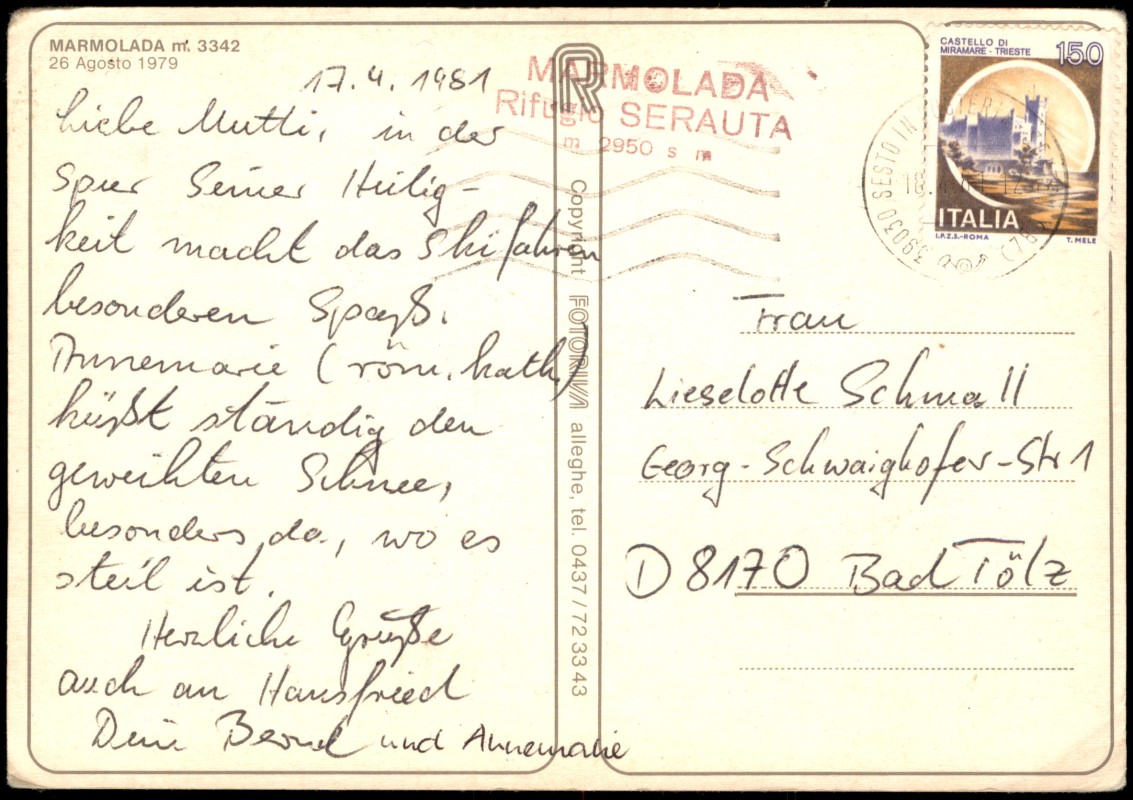 MARMOLADA m. 3342
26 Agosto 1979
17.4.1981
Liebe Mutti, in der
Spur Seiner Heilig-
keit macht das Skifahren
besonderen Spaß.
Annemarie (röm. kath.)
küßt ständig den
geweihten Schnee,
besonders da, wo es
steil ist.
Herzliche Grüße
auch an Hansfried
Dein Bernd und Annemarie
R
Copyright FOTORIVA alleghe, tel. 0437/723343
MARMOLADA
Rifugio SERAUTA
m 2950 s m
CASTELLO DI
MIRAMARE - TRIESTE
150
ITALIA
I.P.Z.S.-ROMA T. MELE
39030 SESTO IN
Frau
Lieselotte Schmall
Georg-Schwaighofer-Str 1
D 8170 Bad Tölz